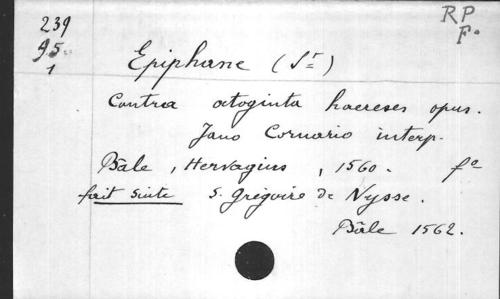 239
95
1
RP
F°
Epiphane (St)
Contra octoginta haereses opus.
Jano Cornario interp.
Bâle, Hervagius, 1560. f°
fait suite S. Grégoire de Nysse.
Bâle 1562.